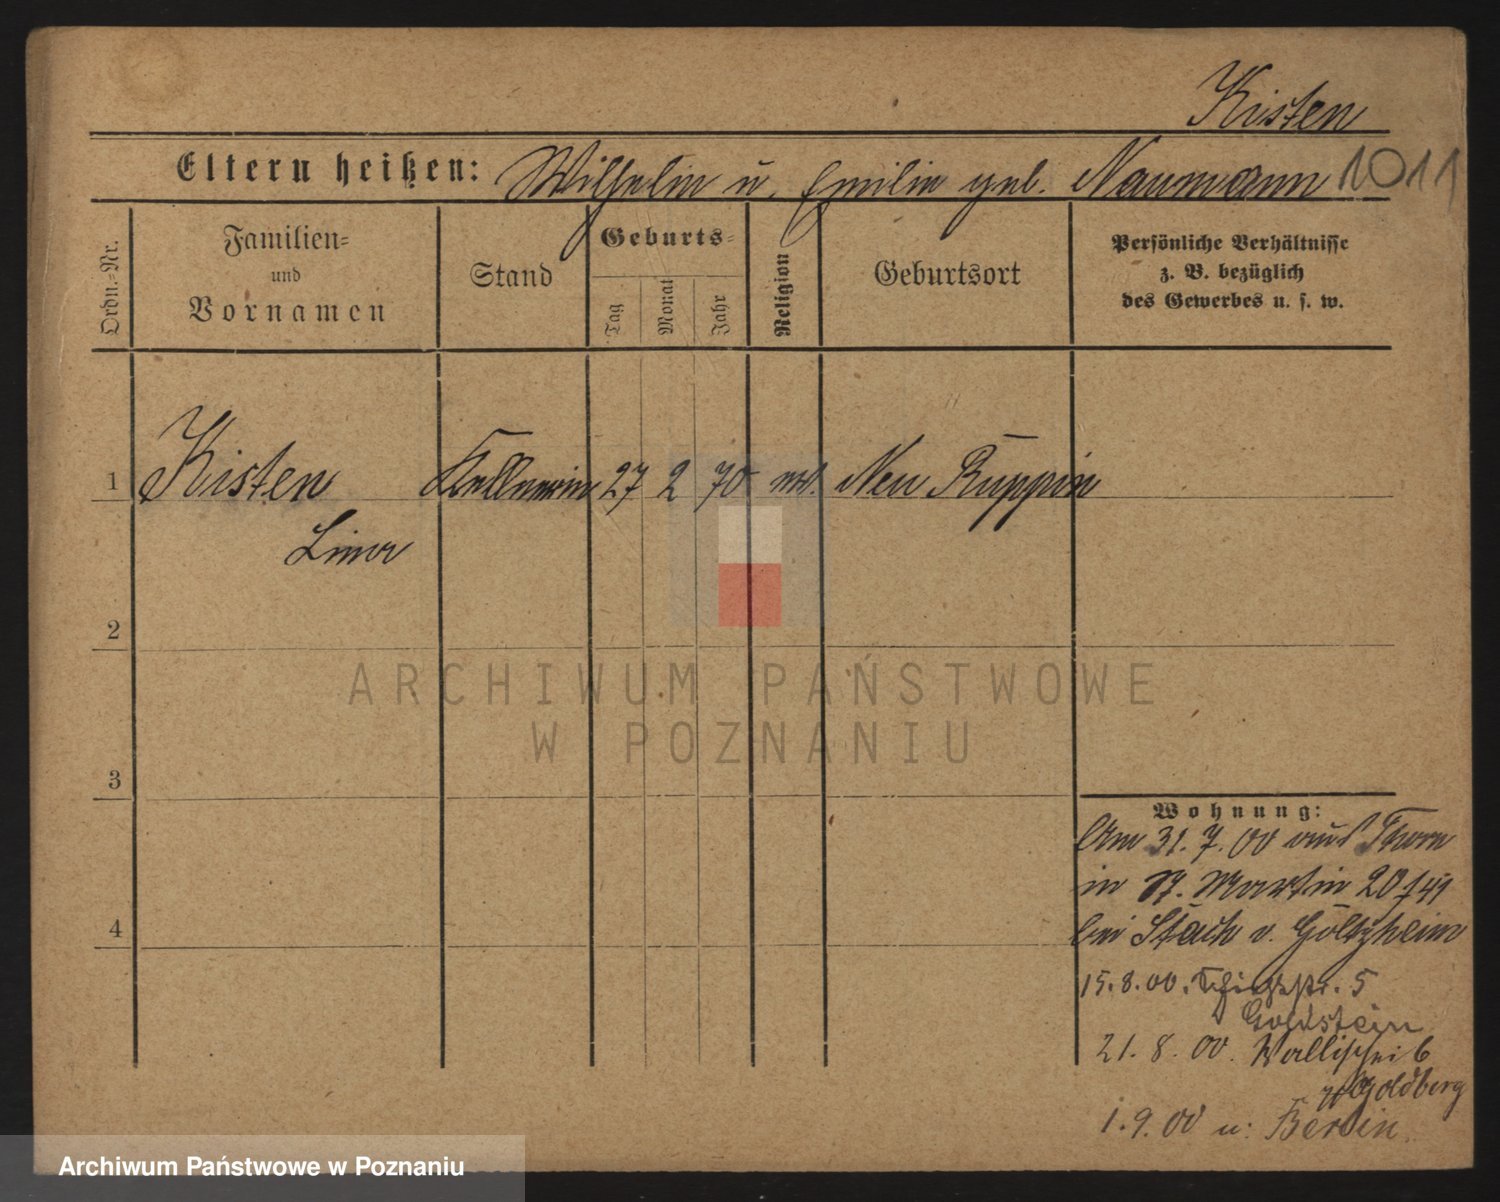 Kisten
Eltern heißen: Wilhelm u. Emilie geb. Naumann 1011
Ordn.-Nr.
Familien-
und
Vornamen
Stand
Geburts-
Tag
Monat
Jahr
Religion
Geburtsort
Persönliche Verhältnisse
z. B. bezüglich
des Gewerbes u. s. w.
1 Kisten Kellnerin 27 2 70 ev. Neu Ruppin
2
3
4
Wohnung:
Am 31. 7. 00 aus Thorn
in St. Martin 20
bei Stach v. Goltzheim
15. 8. 00. 5
Goldstein
21. 8. 00. Wallischei 6
Goldberg
1. 9. 00 n. Berlin.
ARCHIWUM PAŃSTWOWE
W POZNANIU
Archiwum Państwowe w Poznaniu